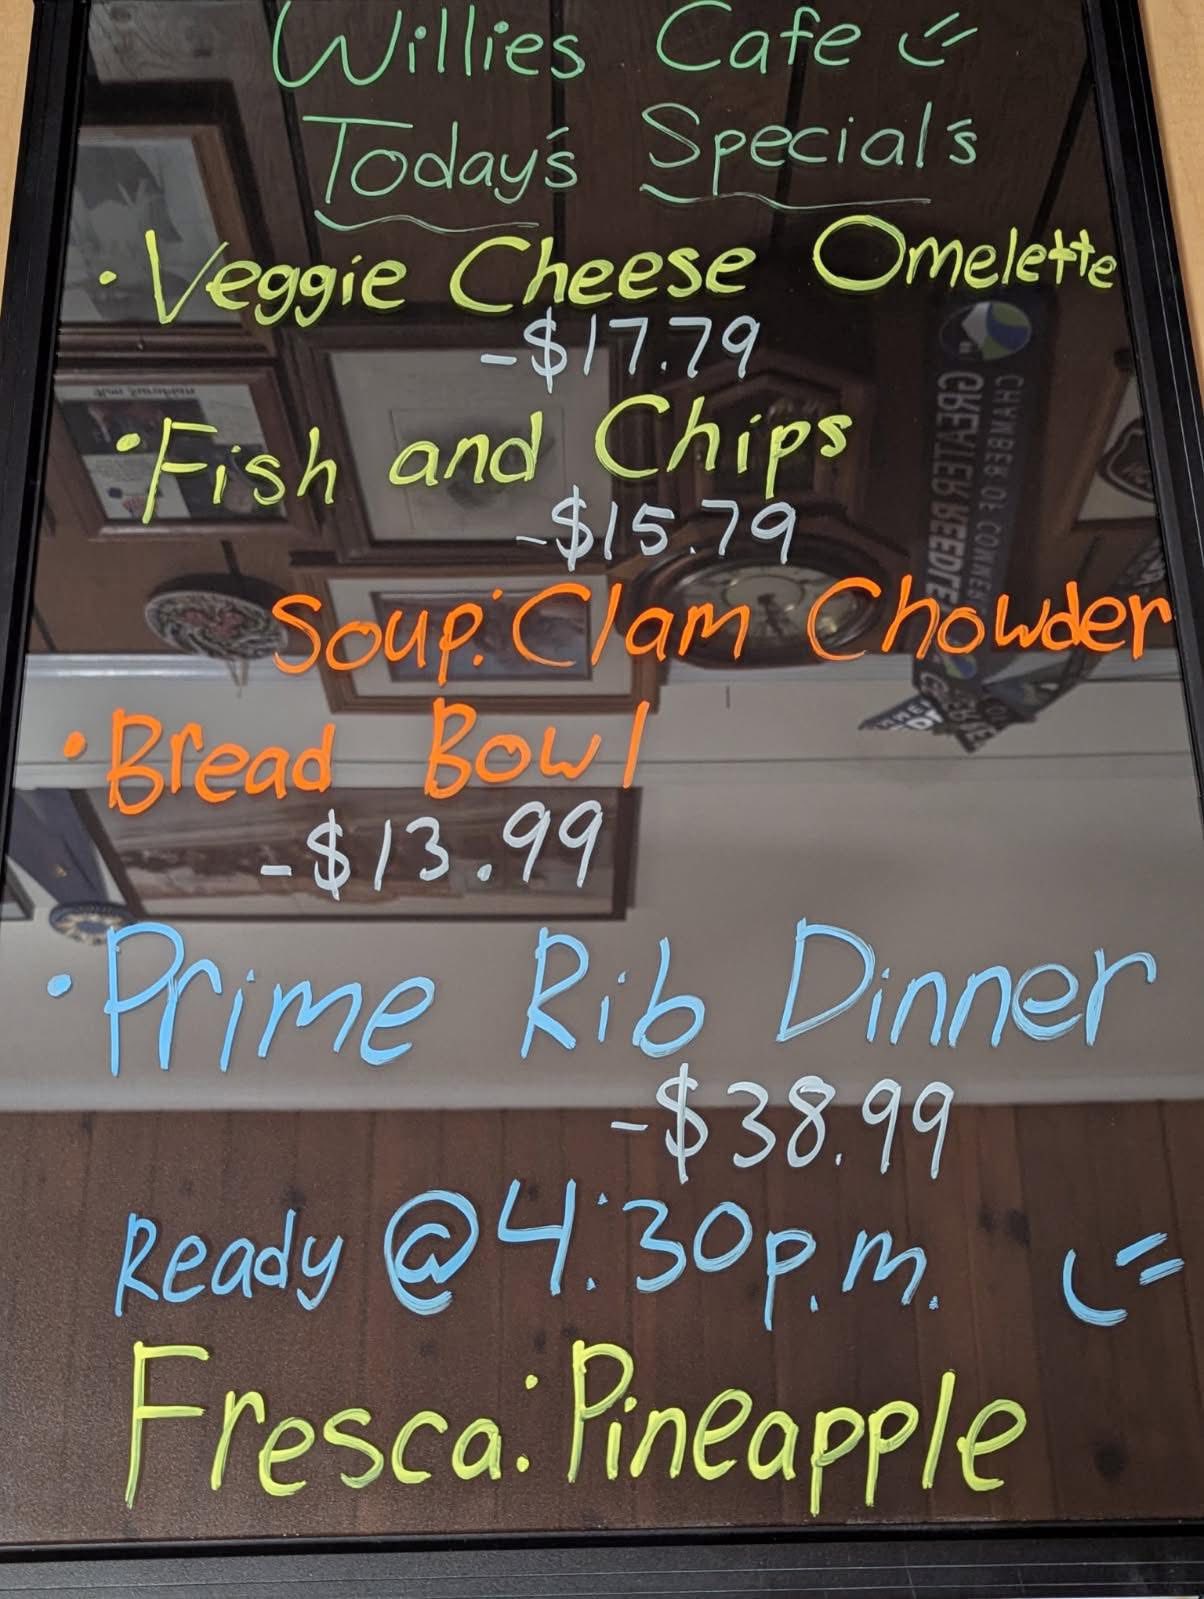 Willies Cafe
Today's Special's
• Veggie Cheese Omelette
-$17.79
• Fish and Chips
-$15.79
Soup: Clam Chowder
• Bread Bowl
-$13.99
• Prime Rib Dinner
-$38.99
Ready @ 4:30p.m.
Fresca: Pineapple
GREATER REEDLEY
CHAMBER OF COMMERCE